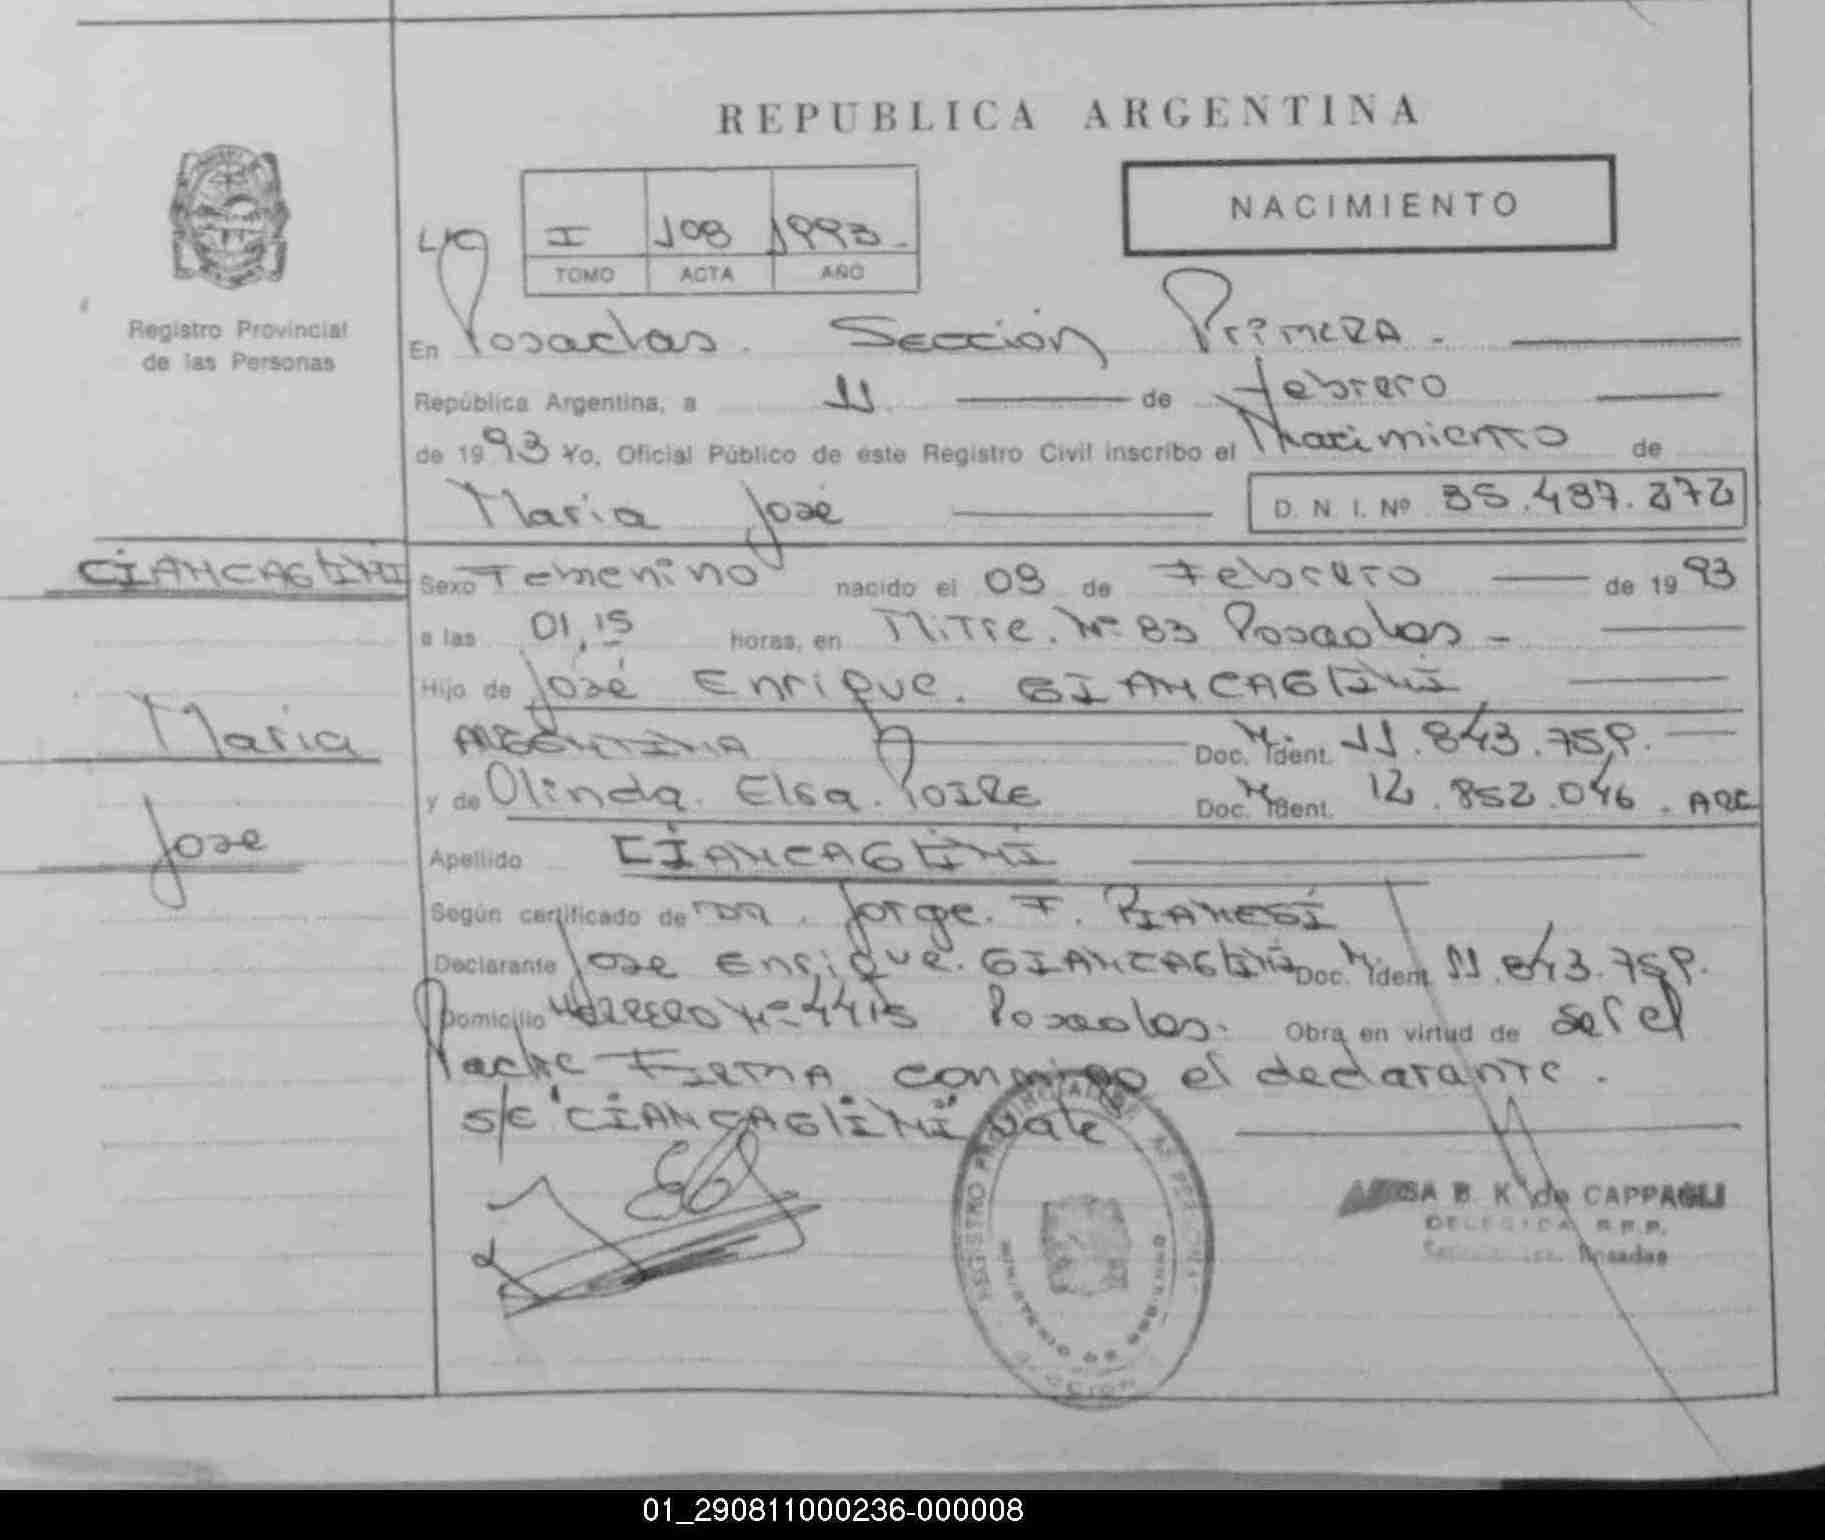 REPUBLICA ARGENTINA
NACIMIENTO
I 108 1993
TOMO ACTA AÑO
Registro Provincial
de las Personas
En Posadas. Sección Primera
República Argentina, a 11 de febrero
de 1993 Yo, Oficial Público de este Registro Civil inscribo el Nacimiento de
María José D. N. I. Nº 35.487.272
CIANCAGLINI
Sexo Femenino nacido el 09 de Febrero de 1993
a las 01,15 horas, en Mitre. Nº 83 Posadas -
Hijo de José Enrique. GIANCAGLINI
ARGENTINA Doc. M. Ident. 11.843.759.
y de Olinda. Elsa. POIRE Doc. M. Ident. 12.852.046. ARG
María
José
Apellido CIANCAGLINI
Según certificado de DR. Jorge. F. PIANESI
Declarante Jose Enrique. GIANCAGLINI Doc. M. Ident 11.843.759.
Domicilio Nº 4415 Posadas. Obra en virtud de ser el
Padre FIRMA conmigo el declarante.
S/E "CIANCAGLINI" Vale
REGISTRO PROVINCIAL DE LAS PERSONAS
MINISTERIO DE GOBIERNO
B. K de CAPPAGLI
DELEGADA R.P.P.
Posadas
01_290811000236-000008